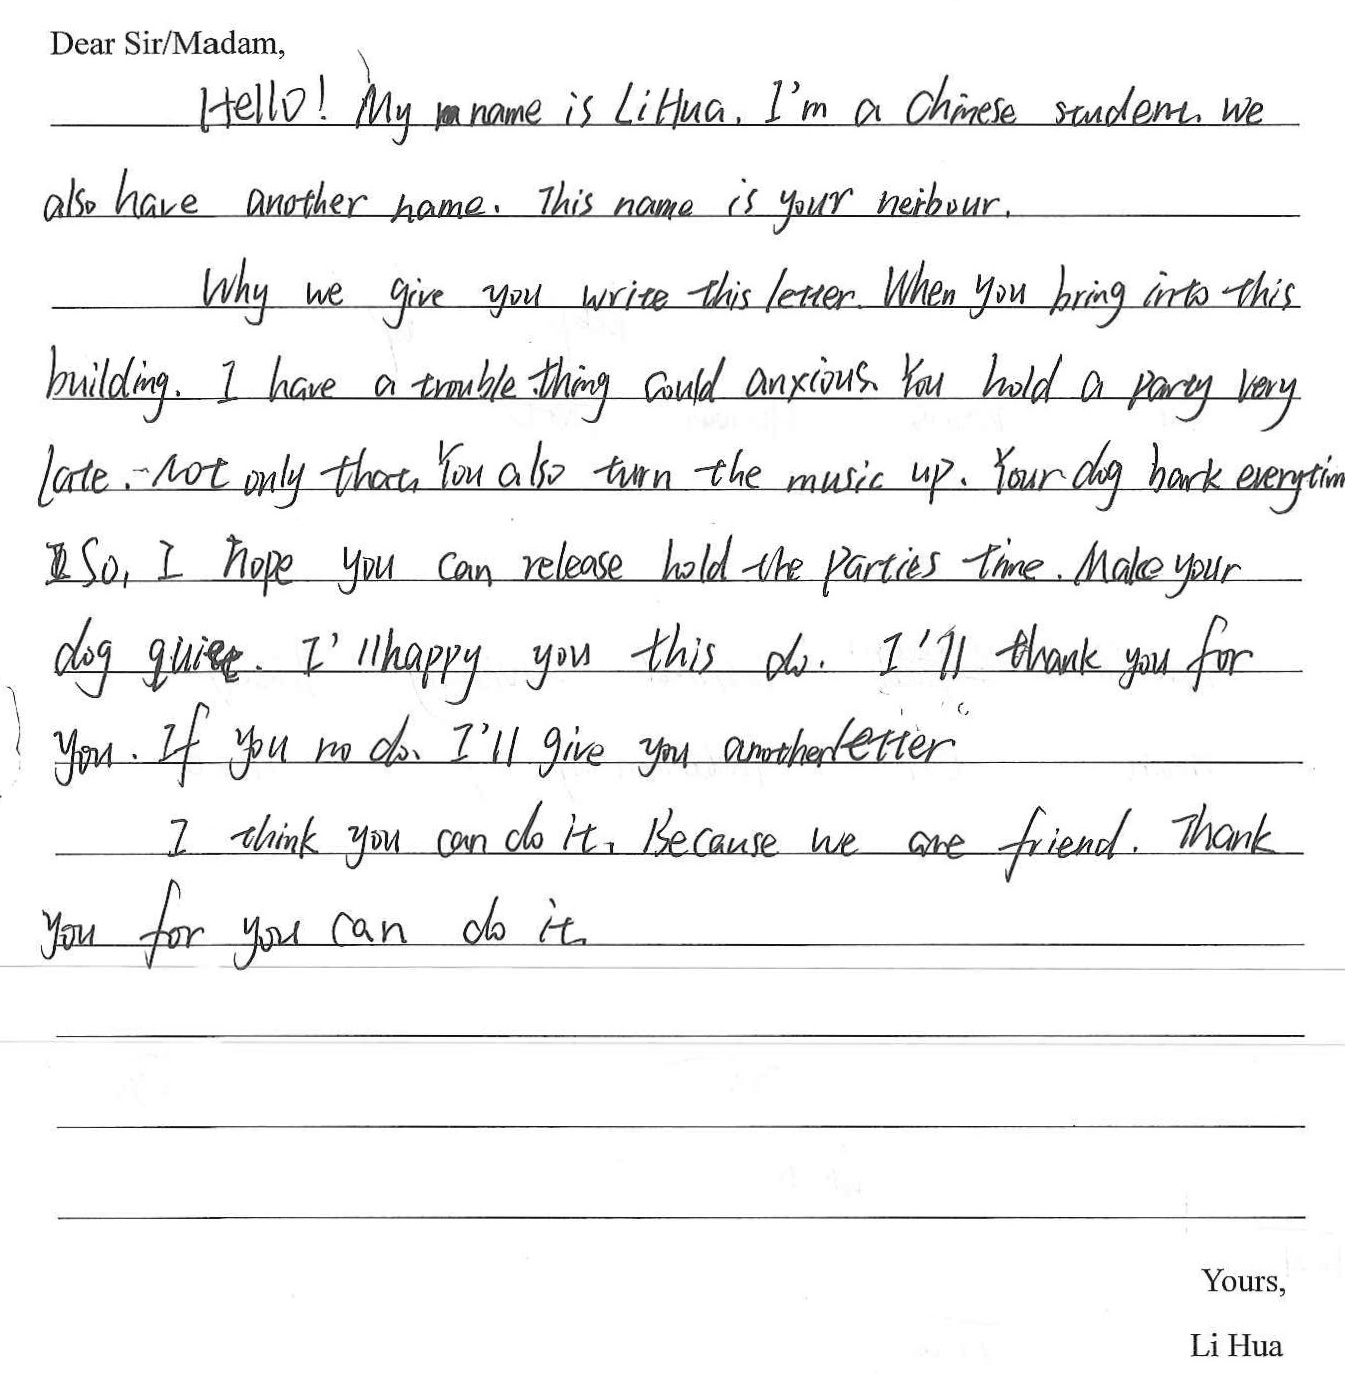 Dear Sir/Madam,
Hello! My name is LiHua. I'm a Chinese student. we
also have another name. This name is your neibour.
Why we give you write this letter. When you bring into this
building. I have a trouble thing could anxious. You hold a party very
late. Not only that. You also turn the music up. Your dog bark everytim
So, I hope you can release hold the parties time. Make your
dog quiet. I'll happy you this do. I'll thank you for
you. If you no do. I'll give you another letter
I think you can do it. Because we are friend. Thank
you for you can do it.
Yours,
Li Hua